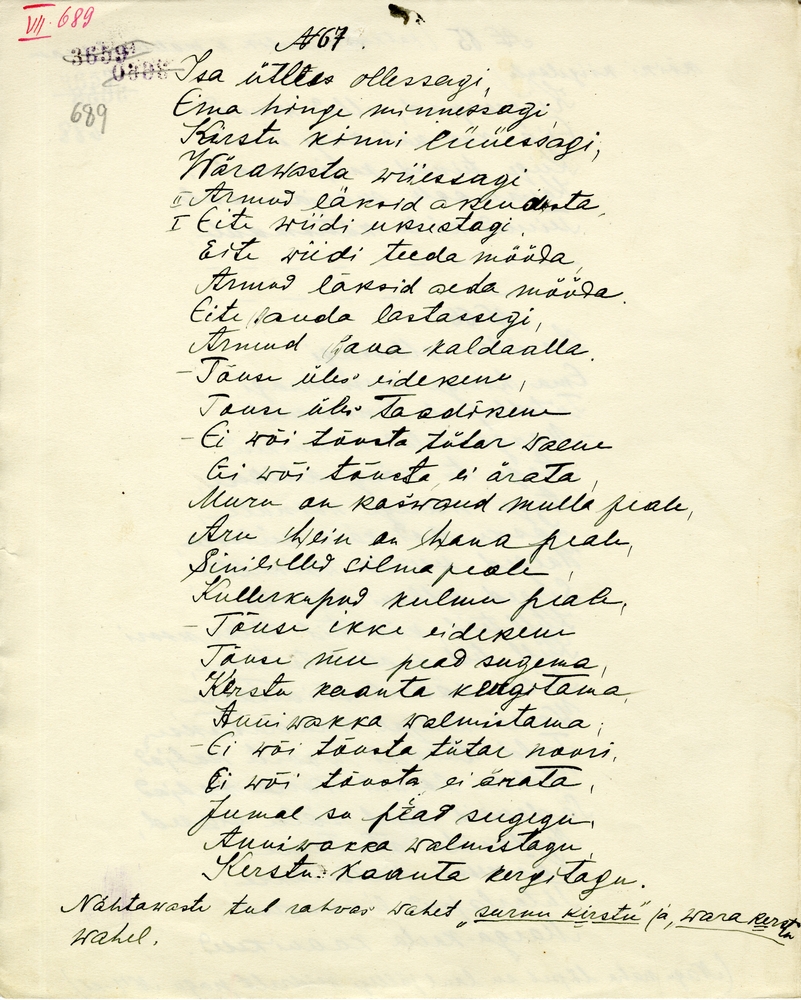 VII. 689
№ 67.
3659
689
Isa ütlles ollessagi,
Ema hinge minnessagi,
Kirstu kinni lüüessagi,
Wärawasta wiiessagi
II Armud läksid akendasta,
I Eite wiidi uksestagi.
Eite wiidi teeda mööda,
Armud läksid aeda mööda.
Eite panda lastassegi,
Armud kaldaalla.
- Tõuse üles eidekene,
Touse üles Taadikene
- Ei wõi tõusta tütar waene
Ei wõi tõusta, ei ärata,
Muru on kaswand mulla peale,
Aru hein on peale,
Sinililled silma peale,
Kullerkupud kulmu peale.
- Tõuse ikke eidekene
Tõuse mu pead sugema,
Kirstu kaanta kergitama,
Anniwakka walmistama;
- Ei wõi tõusta tütar noori,
Ei wõi tõusta, ei ärata,
Jumal su pead sugegu,
Anniwakka walmistagu,
Kerstu kaanta kergitagu.
Nähtawaste tul rahwas wahet "surnu kirstu" ja, wara kerstu
wahel.